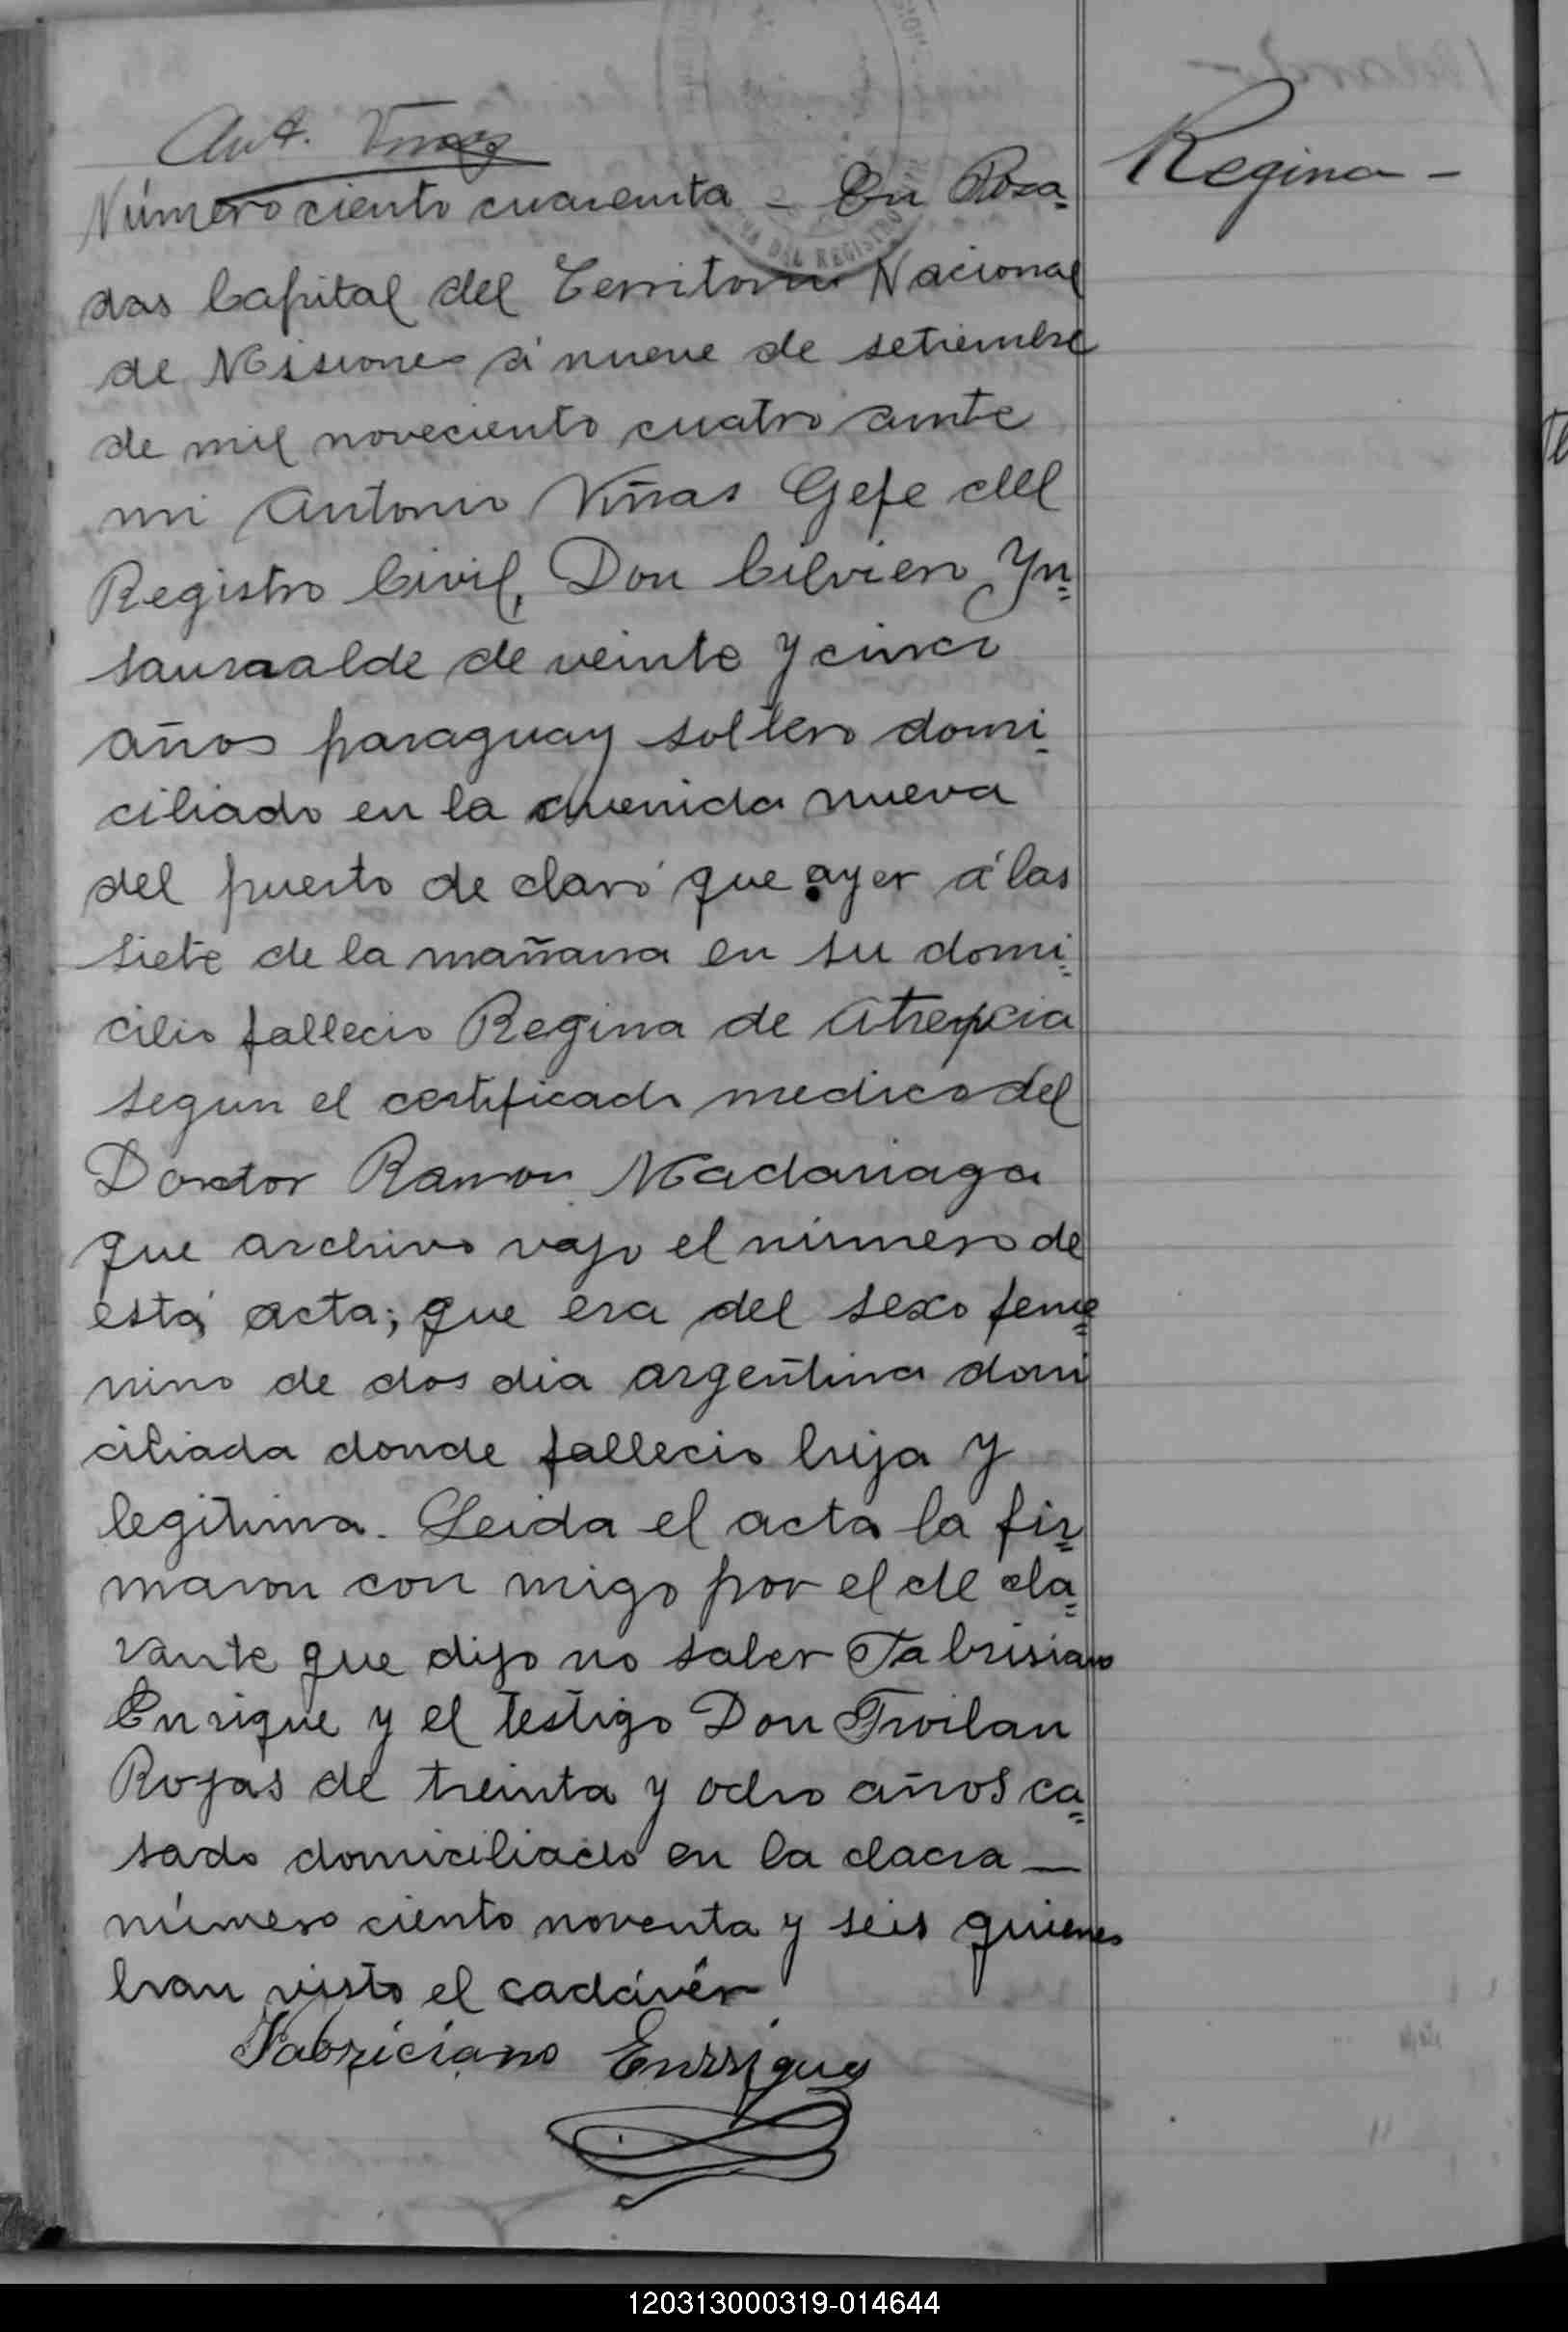 Ant. Viñas
Regina -
Número ciento cuarenta - En Posa=
das Capital del Territorio Nacional
de Misiones á nueve de setiembre
de mil noveciento cuatro ante
mi Antonio Viñas Gefe del
Registro Civil, Don Cilviero Yn=
saurralde de veinte y cinco
años paraguay soltero domi=
ciliado en la avenida nueva
del puerto de claró que ayer á las
siete de la mañana en su domi=
cilio fallecio Regina de Atrepcia
segun el certificado medico del
Doctor Ramon Madariaga
que archivo vajo el número de
está acta; que era del sexo feme=
nino de dos dia argentina domi
ciliada donde fallecio hija y
legitima. Leida el acta la fir=
maron con migo por el de cla=
rante que dijo no saber Fabrisiano
Enrique y el testigo Don Froilan
Rojas de treinta y ocho años ca=
sado domiciliado en la chacra —
número ciento noventa y seis quienes
han visto el cadávér
Fabriciano Enrrique
120313000319-014644